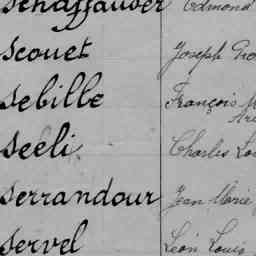 Schaffauser Edmond
Scouet Joseph
Sebille François
Seeli Charles
Serrandour Jean Marie
Servel Léon Louis